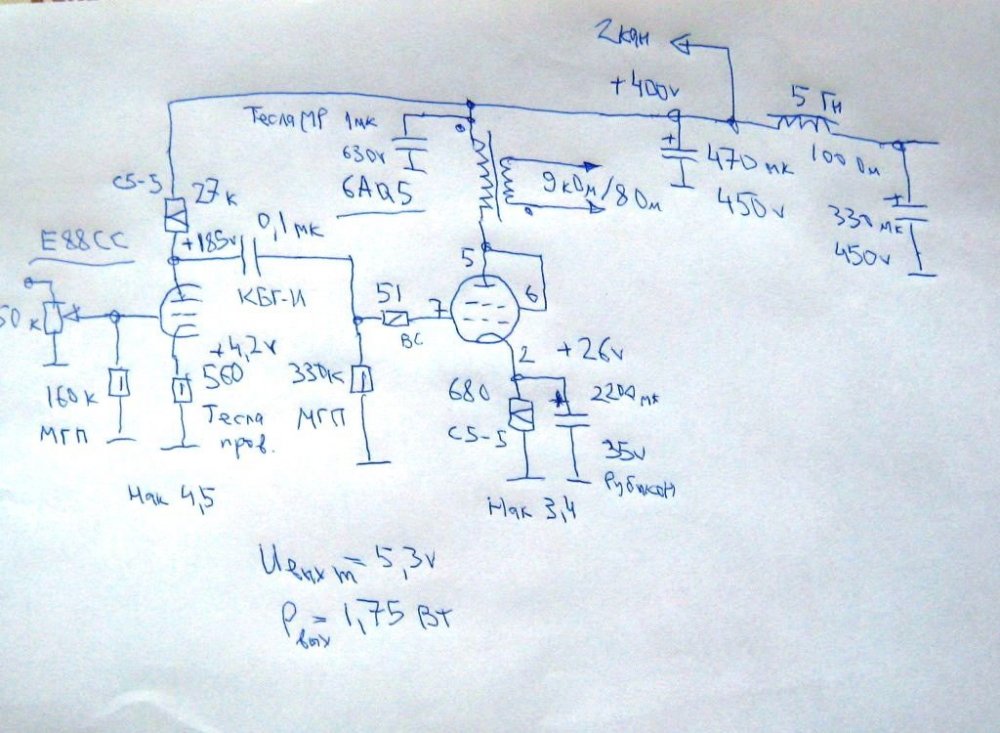 2кан
+400v
5 Гн
100 Ом
470 мк
450v
330 мк
450v
Тесла МР 1мк
630v
6AQ5
9кОм/8Ом
С5-5
27к
+185v
0,1мк
КБГ-И
E88CC
50к
160к
МГП
+4,2v
560
Тесла
пров.
Нак 4,5
330к
МГП
51
ВС
5
7
6
2
+26v
680
С5-5
2200 мк
35v
Рубикон
Нак 3,4
Uвых m = 5,3v
Pвых = 1,75 Вт